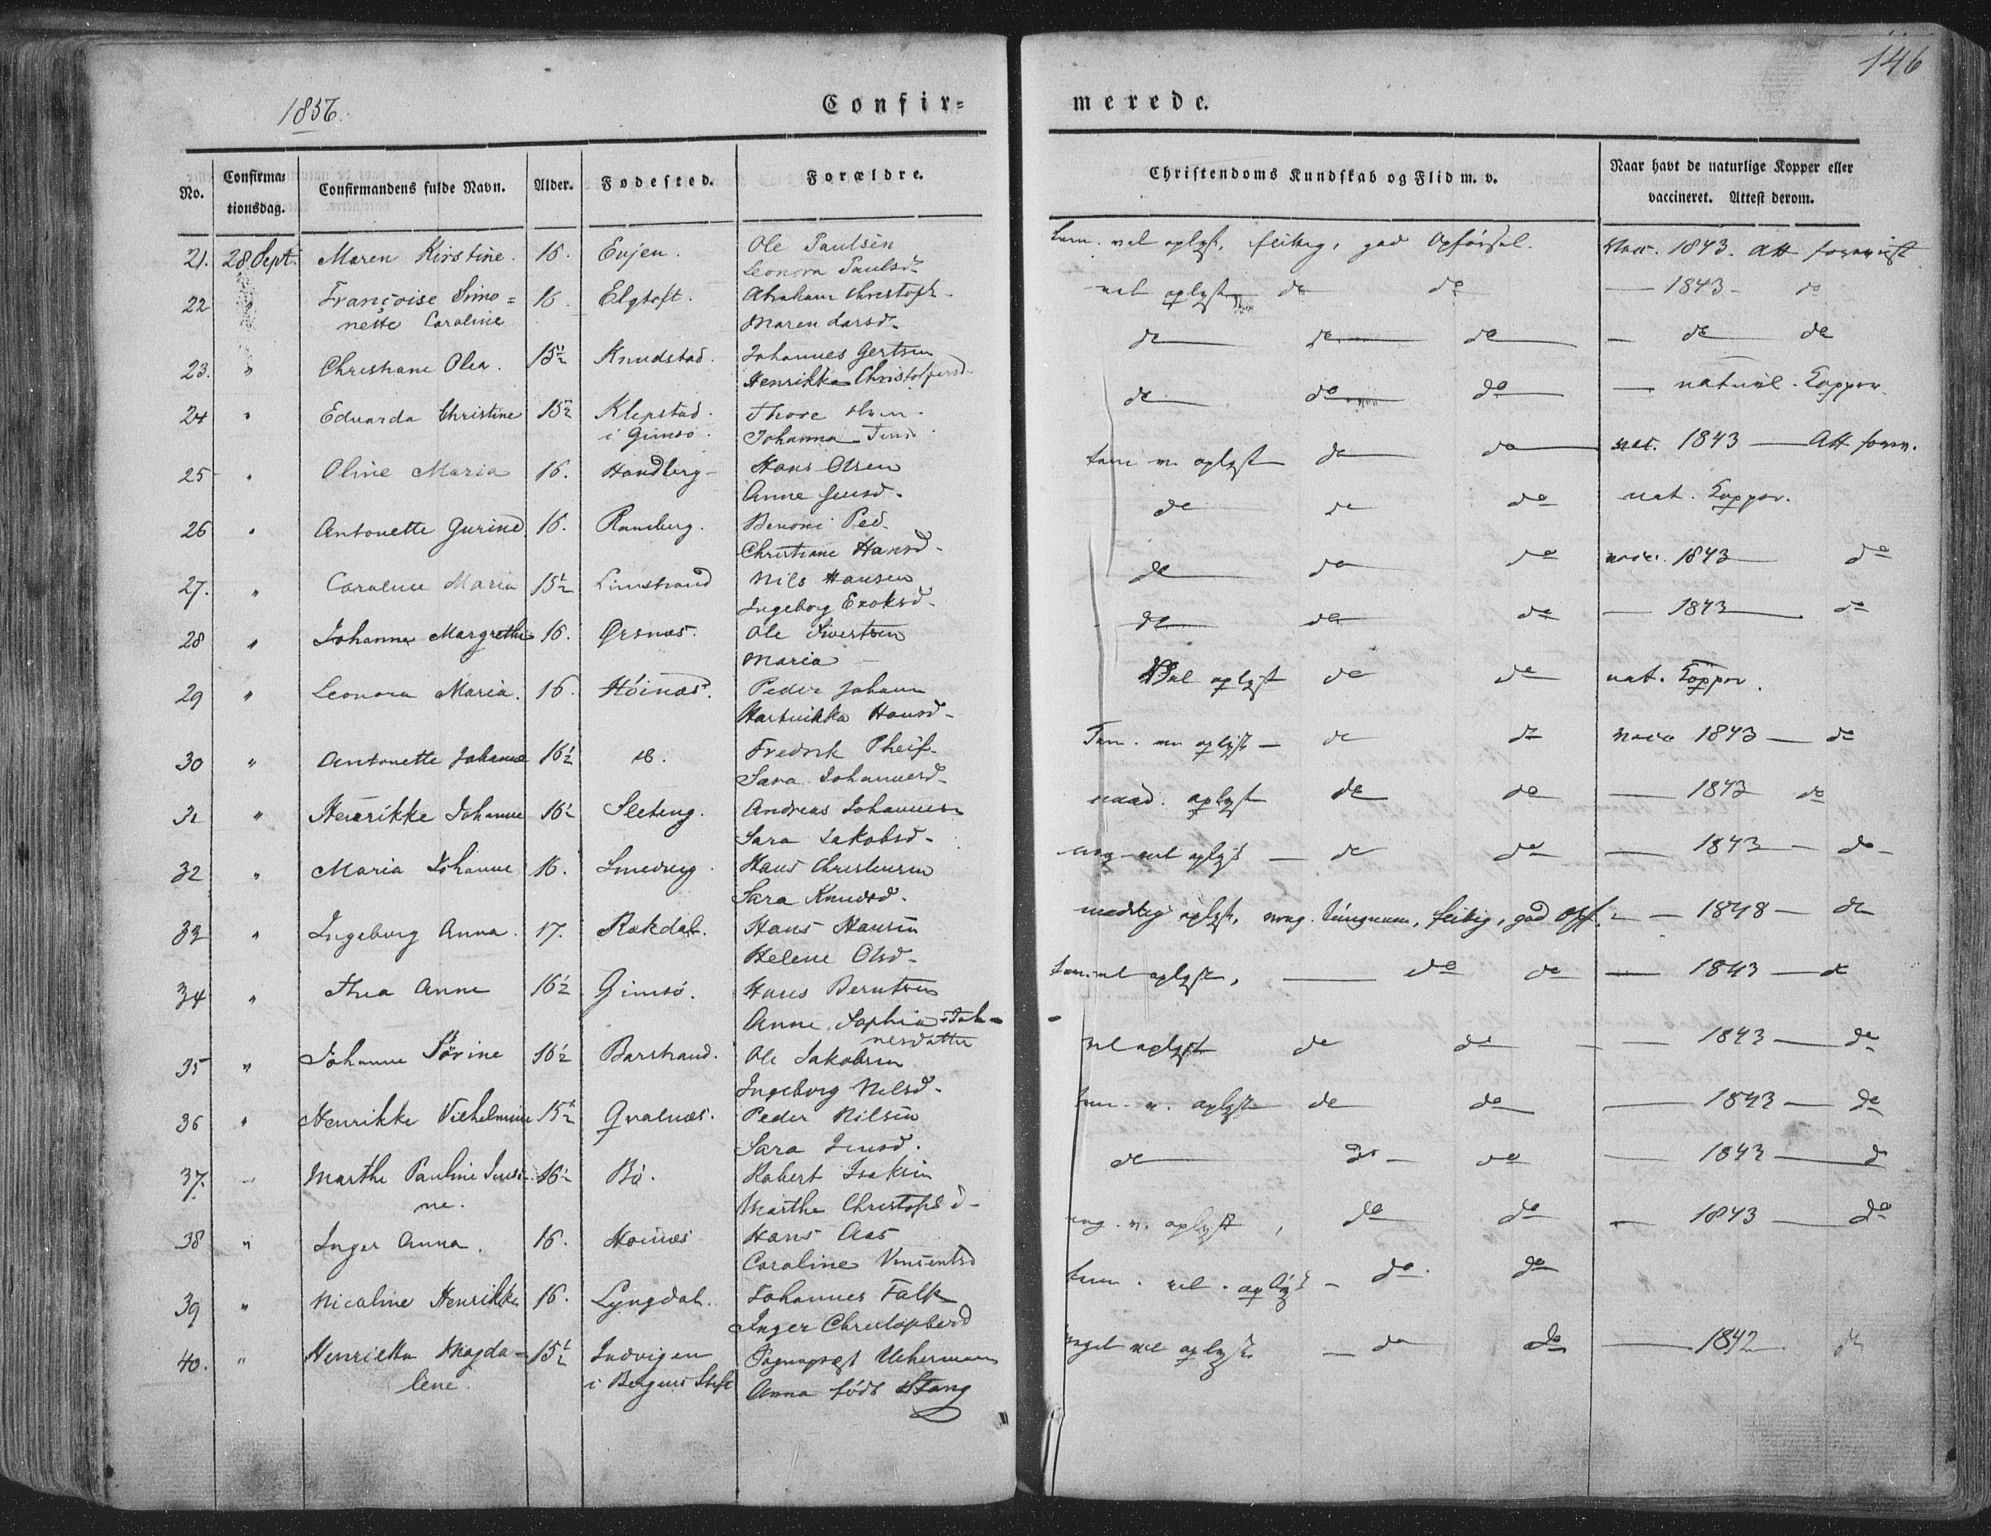 146
1856.
Confir=
merede.
No.
Confirma=
tionsdag.
Confirmandens fulde Navn.
Alder.
Fodested.
Forældre.
Christendoms Kundskab og Flid m. v.
Naar havt de naturlige Kopper eller
vaccineret. Attest derom.
21. 28 Sept. Maren Kirstine. 16. Evjen. Ole Paulsen
Leonora Paulsd.
tem. vel oplyst, flittig, god Opførsel. Vacc. 1843. Att forevist
22 " Françoise Simo= 16. Elgtoft. Abraham Christoph.
nette Caroline Maren Larsd.
vel oplyst do do — 1843 — do
23. " Christiane Olea. 15½ Knudstad. Johannes Gertsen
Henrikka Christophersd.
do do do — do do
24 " Edvarda Christine 15½ Klepstad. Thore Olsen.
i Gimsø. Johanna Jensd.
do do do — naturl. Kopper.
25 " Oline Maria 16. Handberg Hans Olsen
Anne Jensd.
tem v. oplyst do do vac. 1843 — Att forev.
26 " Antonette Gurine 16. Ramberg. Benoni Ped.
Christiane Hansd.
do do do nat. Kopper.
27. " Caroline Maria 15½ Limstrand Nils Hansen
Ingeborg
do do do vacc. 1843 do
28 " Johanne Margrethe 16. Ørsnæs. Ole Sivertsen
Maria —
do do do — 1843 — do
29 " Leonora Maria. 16. Höinæs. Peder Johann
Hartvikka Hansd.
Vel oplyst do do nat. Kopper.
30 " Antonette Johanne 16½ do. Fredrik Pheif.
Sara Johannesd.
Tem. vel oplyst — do do vacc 1843 — do
31 " Henrikke Johanne 16½ Sleteng. Andreas Johannesen
Sara Jakobsd.
oplyst do do — 1843 do
32 " Maria Johanne 16. Smedvig. Hans Christensen
Sara Knudsd.
nog. vel oplyst — do do — 1843 — do
33 " Ingeborg Anna. 17. Rekdal. Hans Hansen
Helene Olsd.
oplyst, nog. flittig, god Opf. — 1848 — do
34 " Thea Anne 16½ Gimsö. Hans Berntsen
Anne Sophia Joh=
nesdatter
tem. vel oplyst, — do do — 1843 — do
35 " Johanne Sörine 16½ Barstrand. Ole Jakobsen
Ingeborg Nilsd.
vel oplyst do do — 1843 — do
36 " Henrikke Vilhelmine 15½ Qvalnæs. Peder Nilsen
Sara Jensd.
tem. v. oplyst do do — 1843 — do
37. " Marthe Pauline Jensi= 16½ Bö. Robert Isaksen
ne. Marthe Christophd.
do do — do — 1843 — do
38 " Inger Anna. 16. Höinæs Hans Aas
Caroline Vinsentsd
nog. v. oplyst, do do — 1843 — do
39 " Nicoline Henrikke 16. Lyngdal. Johannes Falk
Inger Christophersd
tem. vel oplyst — do. do
40. " Henrietta Magda= 15½ Indvigen Sognepræst Uchermann
lene. i Bergens Stift Anna födt Stang
meget vel oplyst. — do do — 1842 do